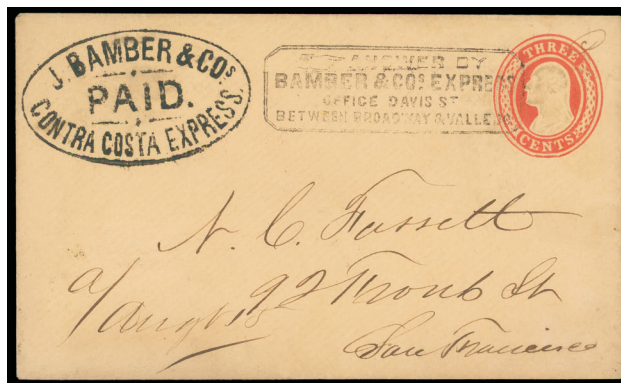 J. BAMBER & COS
PAID.
CONTRA COSTA EXPRESS.
ANSWER BY
BAMBER & COS EXPRESS
OFFICE DAVIS ST
BETWEEN BROADWAY & VALLEJO
THREE
CENTS
N. C. Fassett
92 Front St
San Francisco